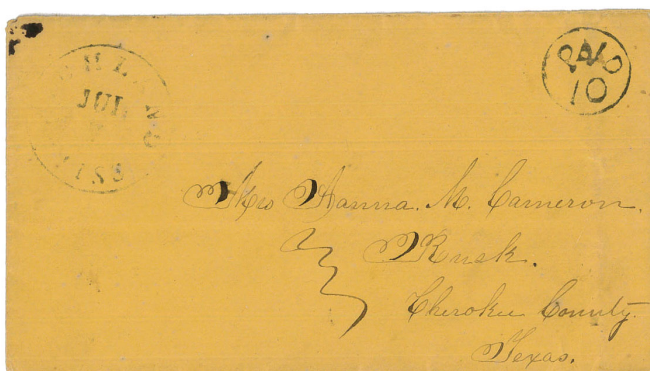 JUL
PAID
10
Hanna. M. Cameron.
Rusk.
Cherokee County.
Texas.